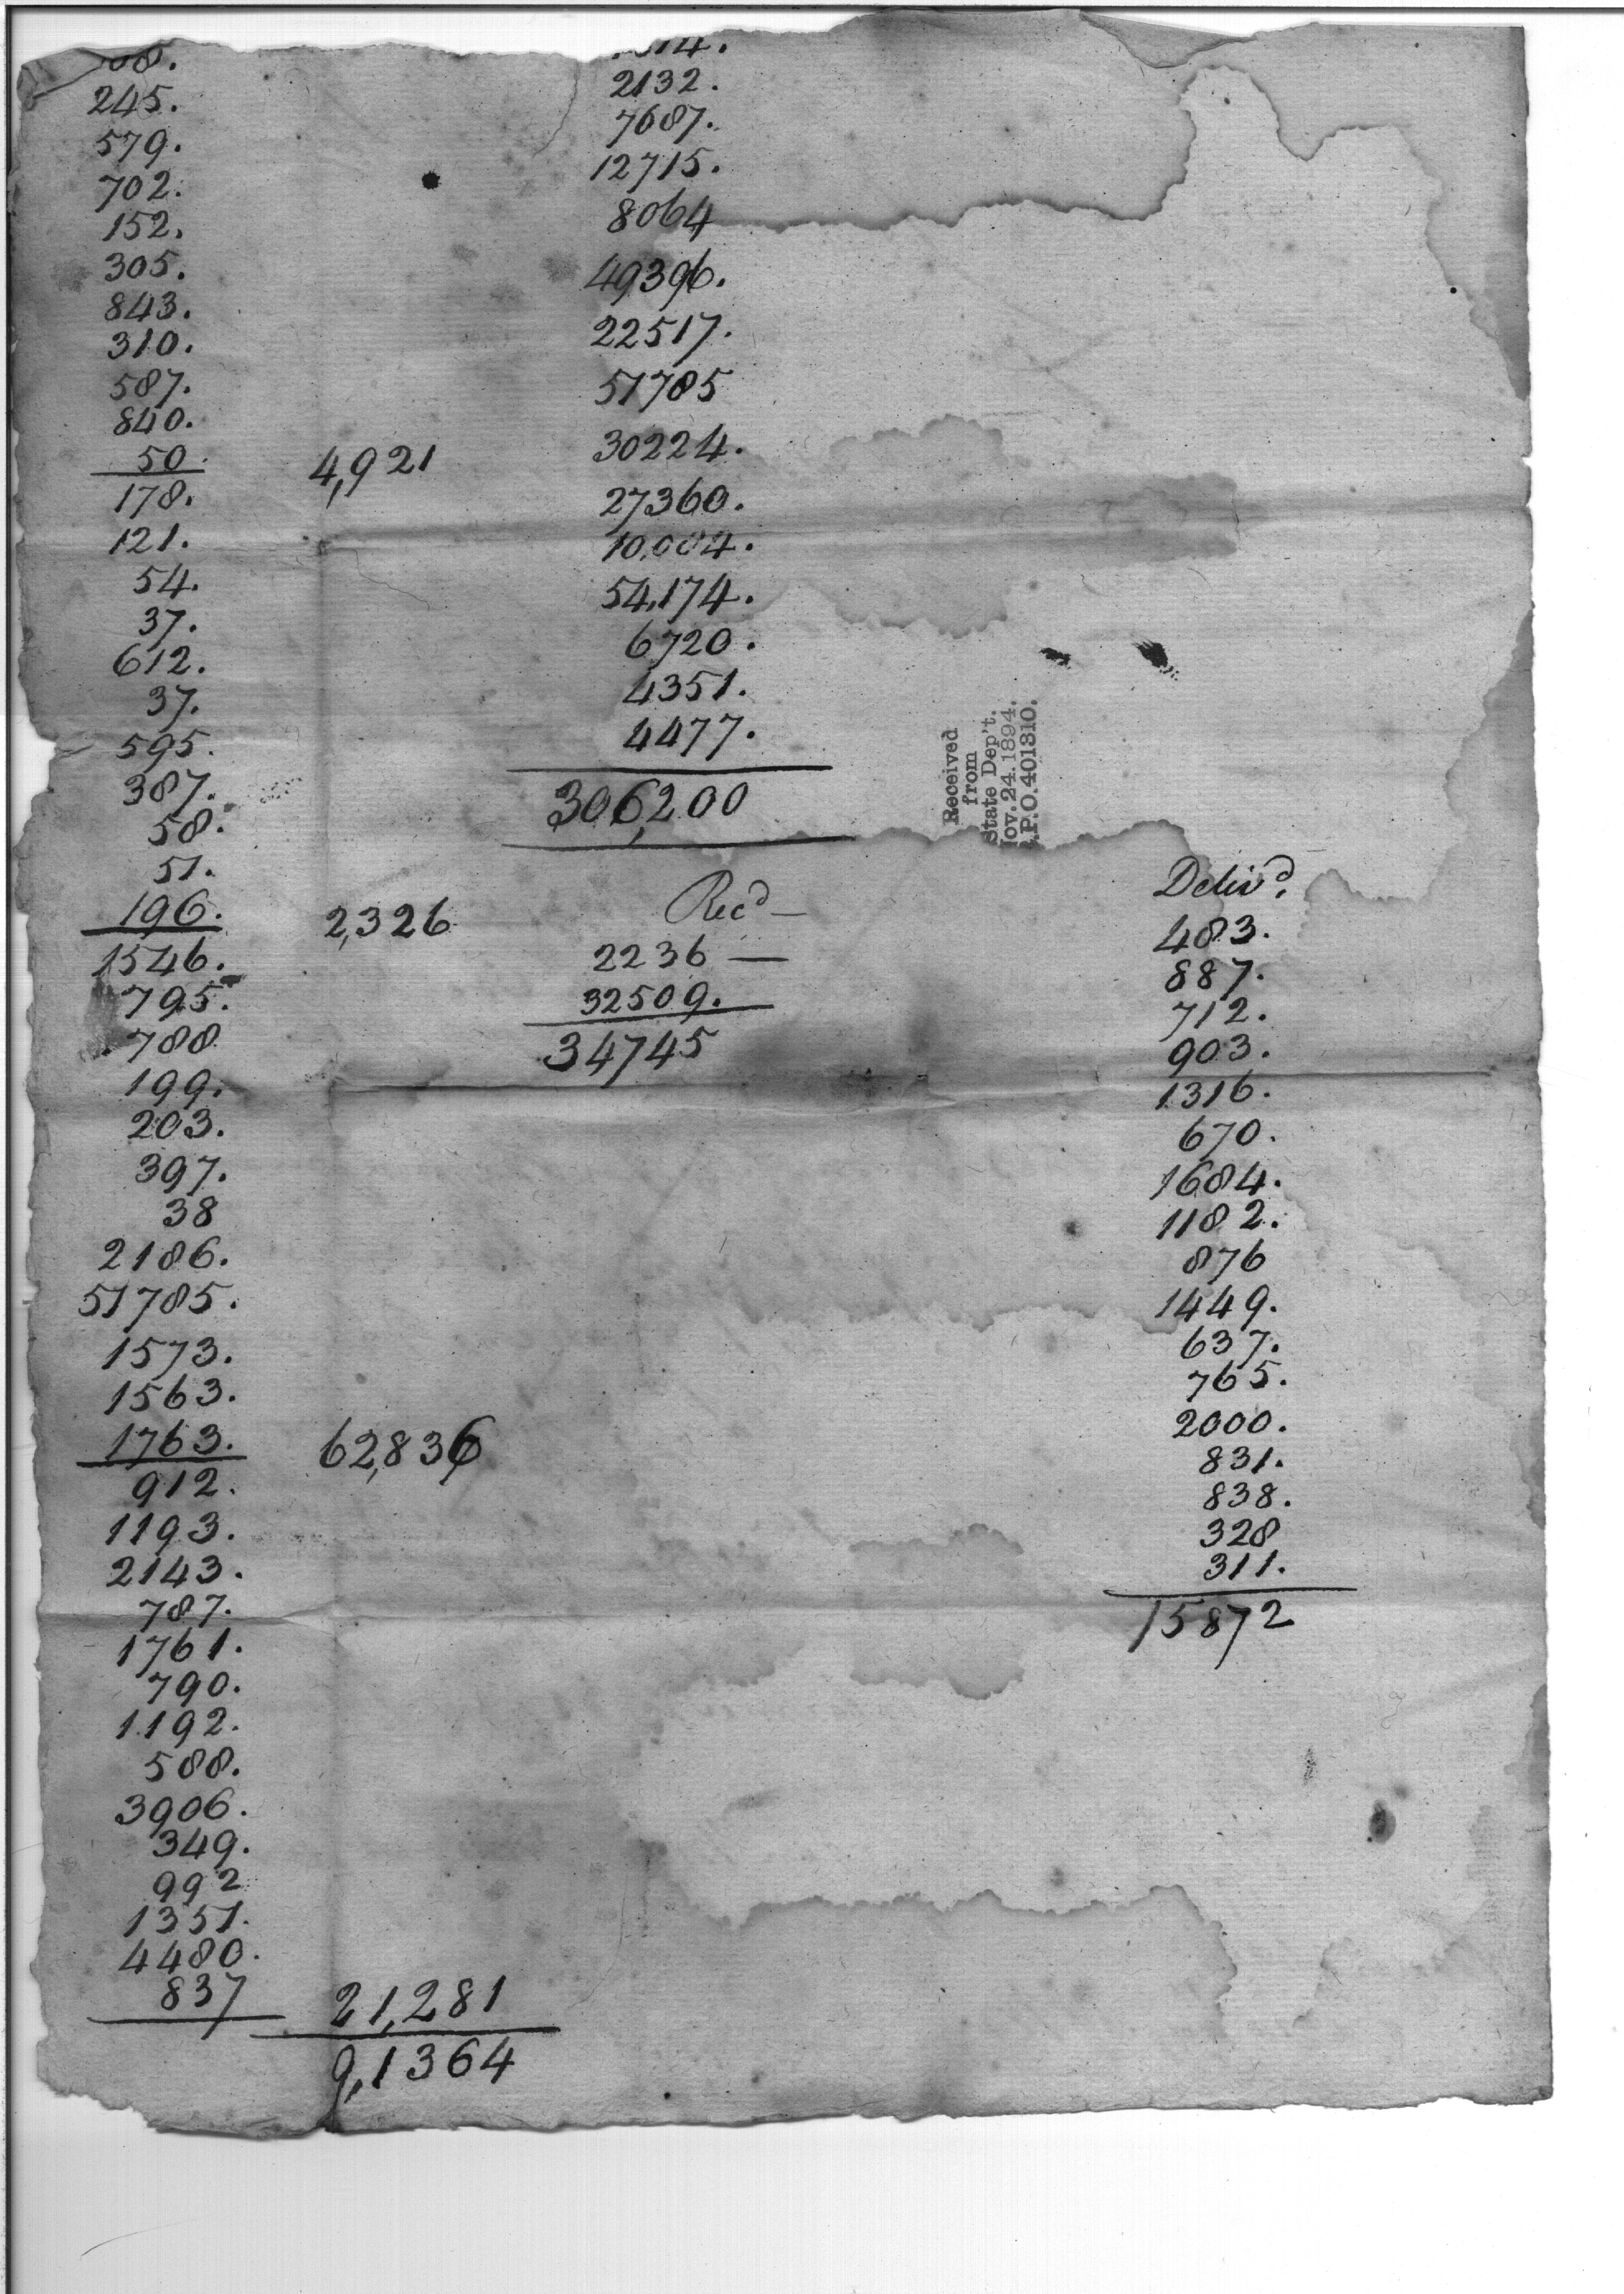 08.
245.
579.
702.
152.
305.
843.
310.
587.
840.
50. 4,921
178.
121.
54.
37.
612.
37.
595.
387.
58.
51.
196. 2,326
1546.
795.
788
199.
203.
397.
38
2186.
51785.
1573.
1563.
1763. 62,836
912.
1193.
2143.
787.
1761.
790.
1192.
588.
3906.
349.
992
1351.
4480.
837 21,281
9,1364
14.
2132.
7687.
12715.
8064
49396.
22517.
51785
30224.
27360.
10,084.
54,174.
6720.
4351.
4477.
306,200
Rec'd —
2236 —
32509.
34745
Received
from
State Dep't.
Nov. 24. 1894.
P.O. 401310.
Deliv'd.
483.
887.
712.
903.
1316.
670.
1684.
1182.
876
1449.
637.
765.
2000.
831.
838.
328
311.
15872